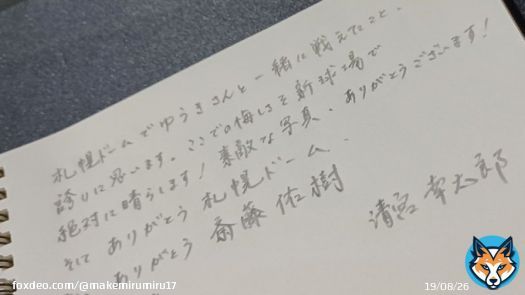 札幌ドームでゆうきさんと一緒に戦えたこと、
誇りに思います。ここでの悔しさを新球場で
絶対に晴らします！素敵な写真、ありがとうございます！
そして ありがとう 札幌ドーム、
ありがとう 斎藤佑樹
清宮幸太郎
foxdeo.com/@makemirumiru17
19/08/26